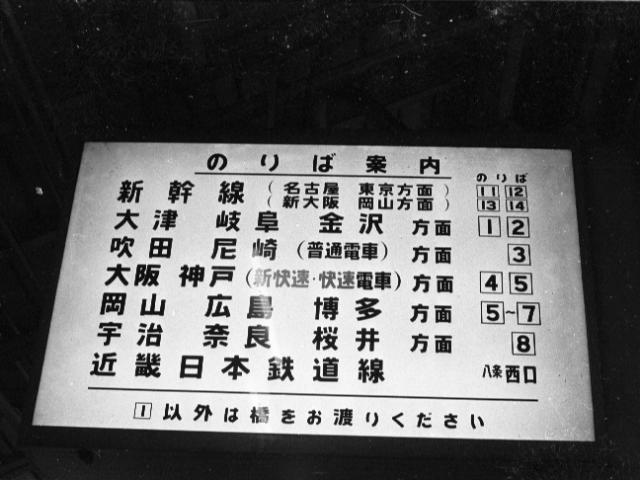 のりば案内
のりば
新幹線（名古屋 東京方面） 11 12
（新大阪 岡山方面） 13 14
大津 岐阜 金沢 方面 1 2
吹田 尼崎（普通電車）方面 3
大阪 神戸（新快速・快速電車）方面 4 5
岡山 広島 博多 方面 5~7
宇治 奈良 桜井 方面 8
近畿日本鉄道線 八条西口
1 以外は橋をお渡りください